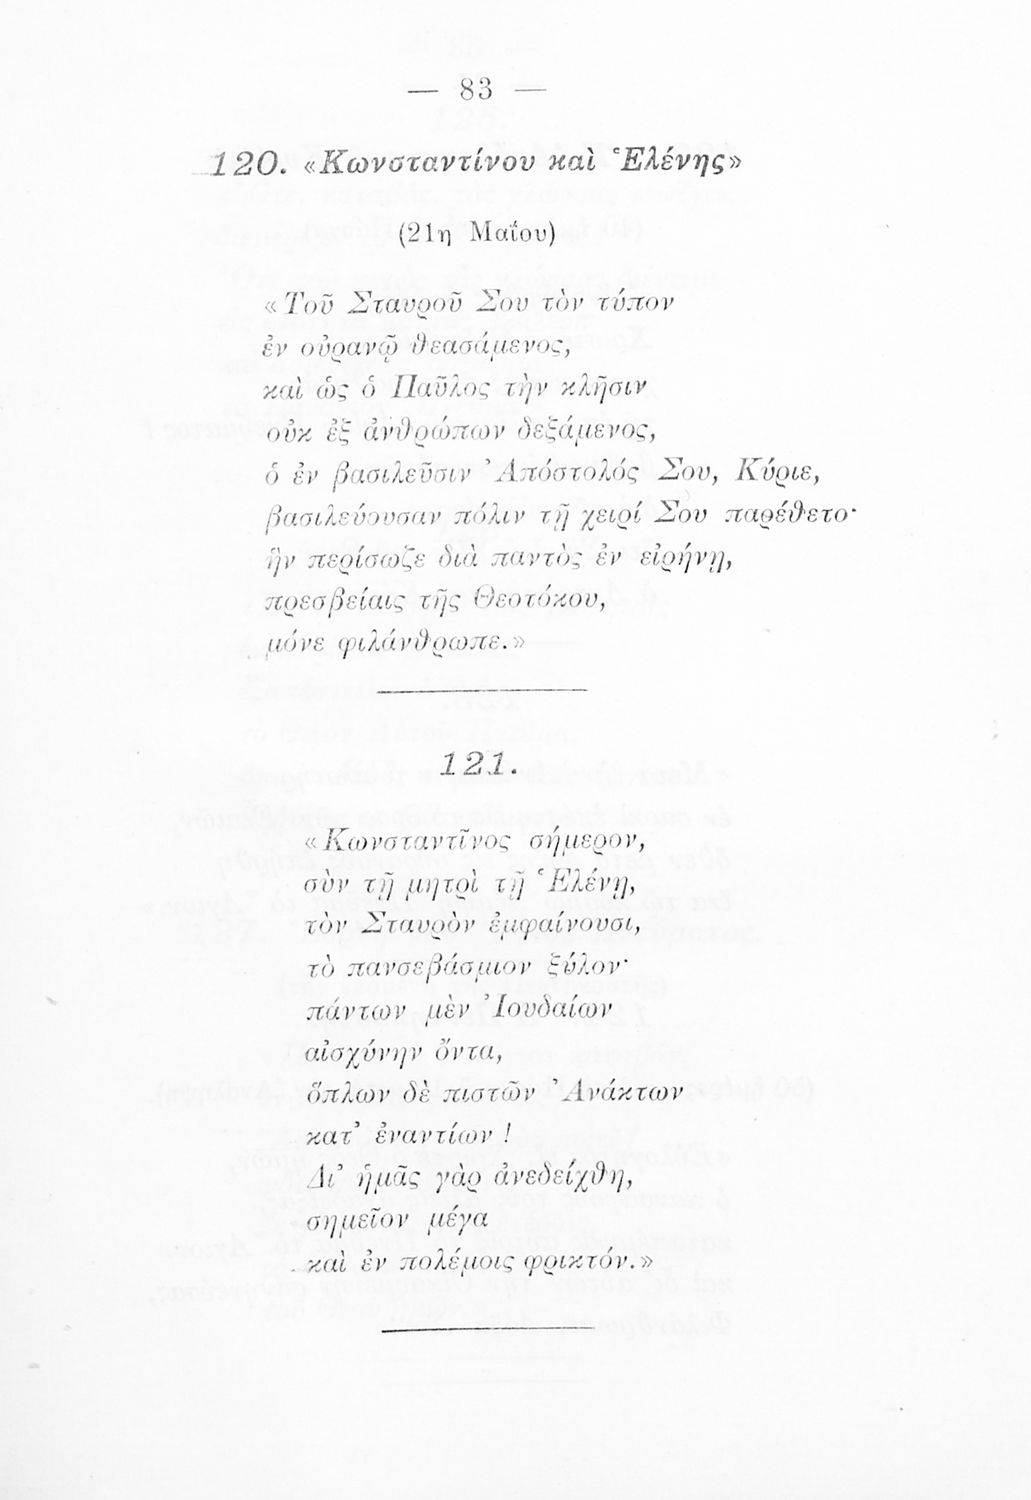 — 83 —
120. «Κωνσταντίνου καὶ Ἑλένης»
(21η Μαΐου)
«Τοῦ Σταυροῦ Σου τὸν τύπον
ἐν οὐρανῷ θεασάμενος,
καὶ ὡς ὁ Παῦλος τὴν κλῆσιν
οὐκ ἐξ ἀνθρώπων δεξάμενος,
ὁ ἐν βασιλεῦσιν Ἀπόστολός Σου, Κύριε,
βασιλεύουσαν πόλιν τῇ χειρί Σου παρέθετο·
ἣν περίσωζε διὰ παντὸς ἐν εἰρήνῃ,
πρεσβείαις τῆς Θεοτόκου,
μόνε φιλάνθρωπε.»
121.
«Κωνσταντῖνος σήμερον,
σὺν τῇ μητρὶ τῇ Ἑλένῃ,
τὸν Σταυρὸν ἐμφαίνουσι,
τὸ πανσεβάσμιον ξύλον·
πάντων μὲν Ἰουδαίων
αἰσχύνην ὄντα,
ὅπλων δὲ πιστῶν Ἀνάκτων
κατ’ ἐναντίων!
Δι’ ἡμᾶς γὰρ ἀνεδείχθη,
σημεῖον μέγα
καὶ ἐν πολέμοις φρικτόν.»